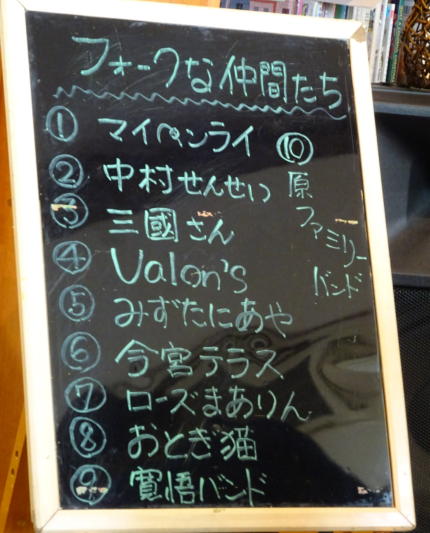 フォークな仲間たち
① マイペンライ
② 中村せんせい
③ 三國さん
④ Valon's
⑤ みずたにあや
⑥ 今宮テラス
⑦ ローズまありん
⑧ おとぎ猫
⑨ 寛悟バンド
⑩ 原
ファミリー
バンド